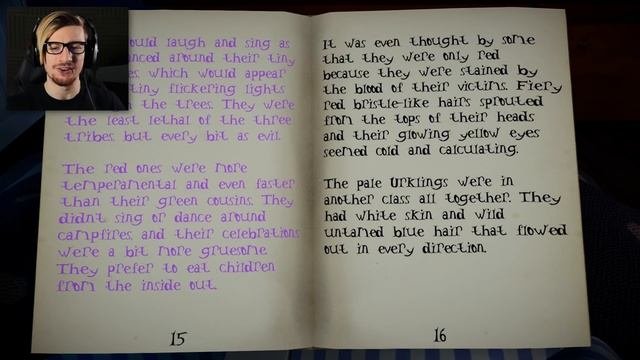 ould laugh and sing as
nced around their tiny
es. which would appear
tiny flickering lights
n the trees. They were
the least lethal of the three
tribes. but every bit as evil.
The red ones were more
temperamental and even faster
than their green cousins. They
didnt sing or dance around
campfires. and their celebrations
were a bit more gruesome
They prefer to eat children
from the inside out.
15
It was even thought by some
that they were only red
because they were stained by
the blood of their victims. Fiery
red bristle-like hairs sprouted
from the tops of their heads
and their glowing yellow eyes
seemed cold and calculating.
The pale Urklings were in
another class all together. They
had white skin and wild
untamed blue hair that flowed
out in every direction.
16